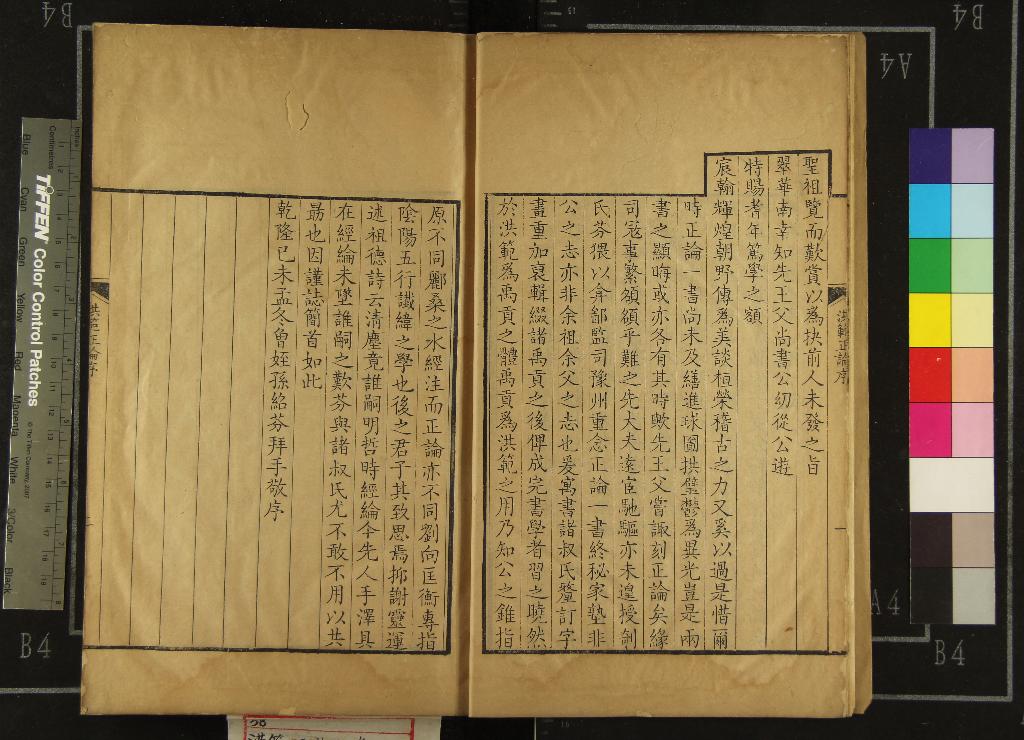 聖祖覽而歎賞以爲抉前人未發之旨
翠華南幸知先王父尚書公幼從公遊
特賜耆年篤學之額
宸翰輝煌朝野傳爲美談桓榮稽古之力又奚以過是惜爾
時正論一書尚未及繕進球圖拱璧鬱爲異光豈是兩
書之顯晦或亦各有其時歟先王父嘗諏刻正論矣緣
司寇事繁額額乎難之先大夫遠宦馳驅亦未遑授劂
氏芬猥以弇鄙監司豫州重念正論一書終秘家塾非
公之志亦非余祖余父之志也爰寓書諸叔氏釐訂字
畫重加裒輯綴諸禹貢之後俾成完書學者習之曉然
於洪範爲禹貢之體禹貢爲洪範之用乃知公之錐指
原不同酈桑之水經注而正論亦不同劉向匡衡專指
陰陽五行讖緯之學也後之君子其致思焉抑謝靈運
述祖德詩云清塵竟誰嗣明哲時經綸今先人手澤具
在經綸未墜誰嗣之歎芬與諸叔氏尤不敢不用以共
勗也因謹誌簡首如此
乾隆己未孟冬曾姪孫紹芬拜手敬序
洪範正論序
一
洪範正論序
二
TIFFEN Color Control Patches
© The Tiffen Company, 2007
Centimetres
Inches
Blue
Cyan
Green
Yellow
Red
Magenta
White
3/Color
Black
B4
B4
A4
A4
B4
B4